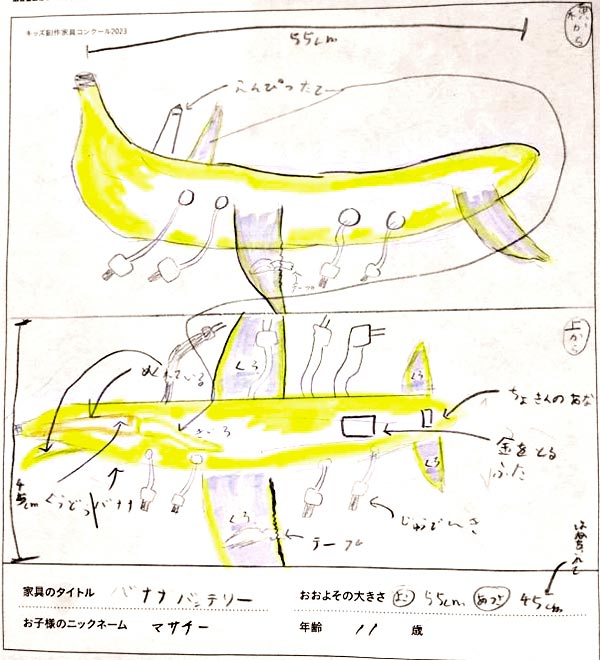 キッズ創作家具コンクール2023
55cm
えんぴつたて
テープル
上から
くろ
めくれている
くろ
ちょきんのあな
きいろ
金をとる
ふた
45cm
バナナ
くろ
くろ
じゅうでんき
テーブル
家具のタイトル バナナバッテリー
おおよその大きさ よこ 55cm あつさ 45cm
お子様のニックネーム マサチー
年齢 11 歳